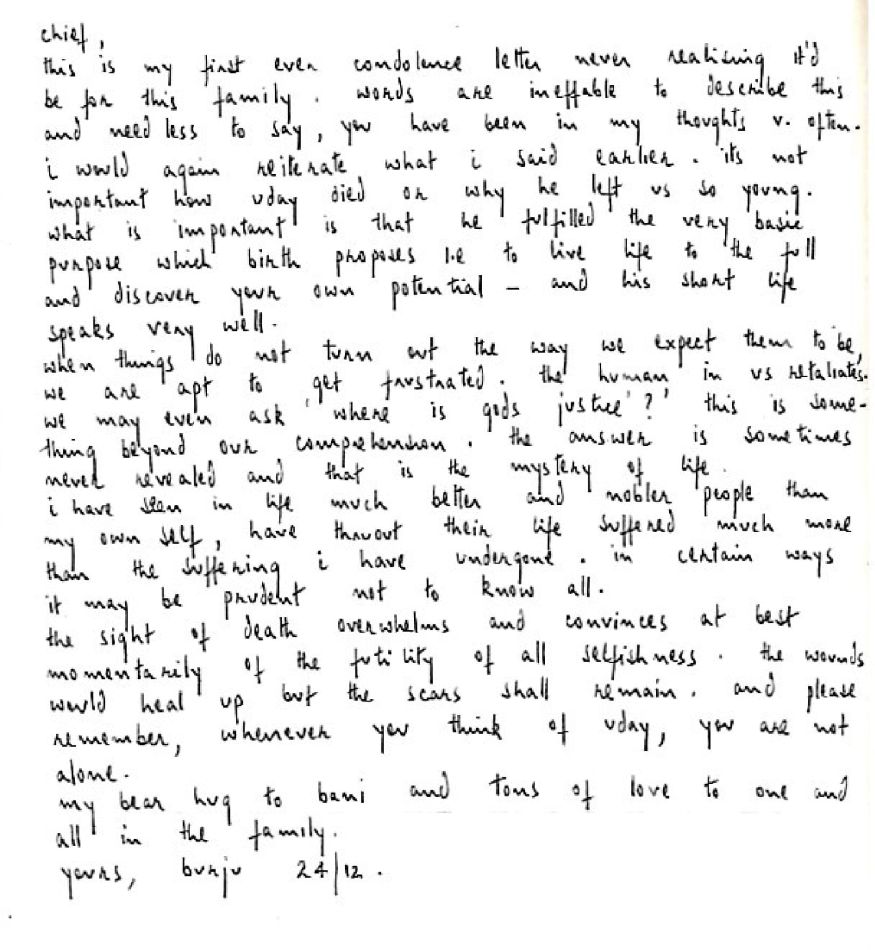 chief,
this is my first ever condolence letter never realising it'd
be for this family. words are ineffable to describe this
and need less to say, you have been in my thoughts v. often.
i would again reiterate what i said earlier. its not
important how uday died or why he left us so young.
what is important is that he fulfilled the very basic
purpose which birth proposes i.e to live life to the full
and discover your own potential – and his short life
speaks very well.
when things do not turn out the way we expect them to be,
we are apt to get frustrated. the 'human' in us retaliates.
we may even ask 'where is gods justice'?' this is some-
thing beyond our comprehension. the answer is sometimes
never revealed and that is the mystery of life.
i have seen in life much better and nobler people than
my own self, have thruout their life suffered much more
than the suffering i have undergone. in certain ways
it may be prudent not to know all.
the sight of death overwhelms and convinces at best
momentarily of the futility of all selfishness. the wounds
would heal up but the scars shall remain. and please
remember, whenever you think of uday, you are not
alone.
my bear hug to bani and tons of love to one and
all in the family.
yours, burju 24/12.